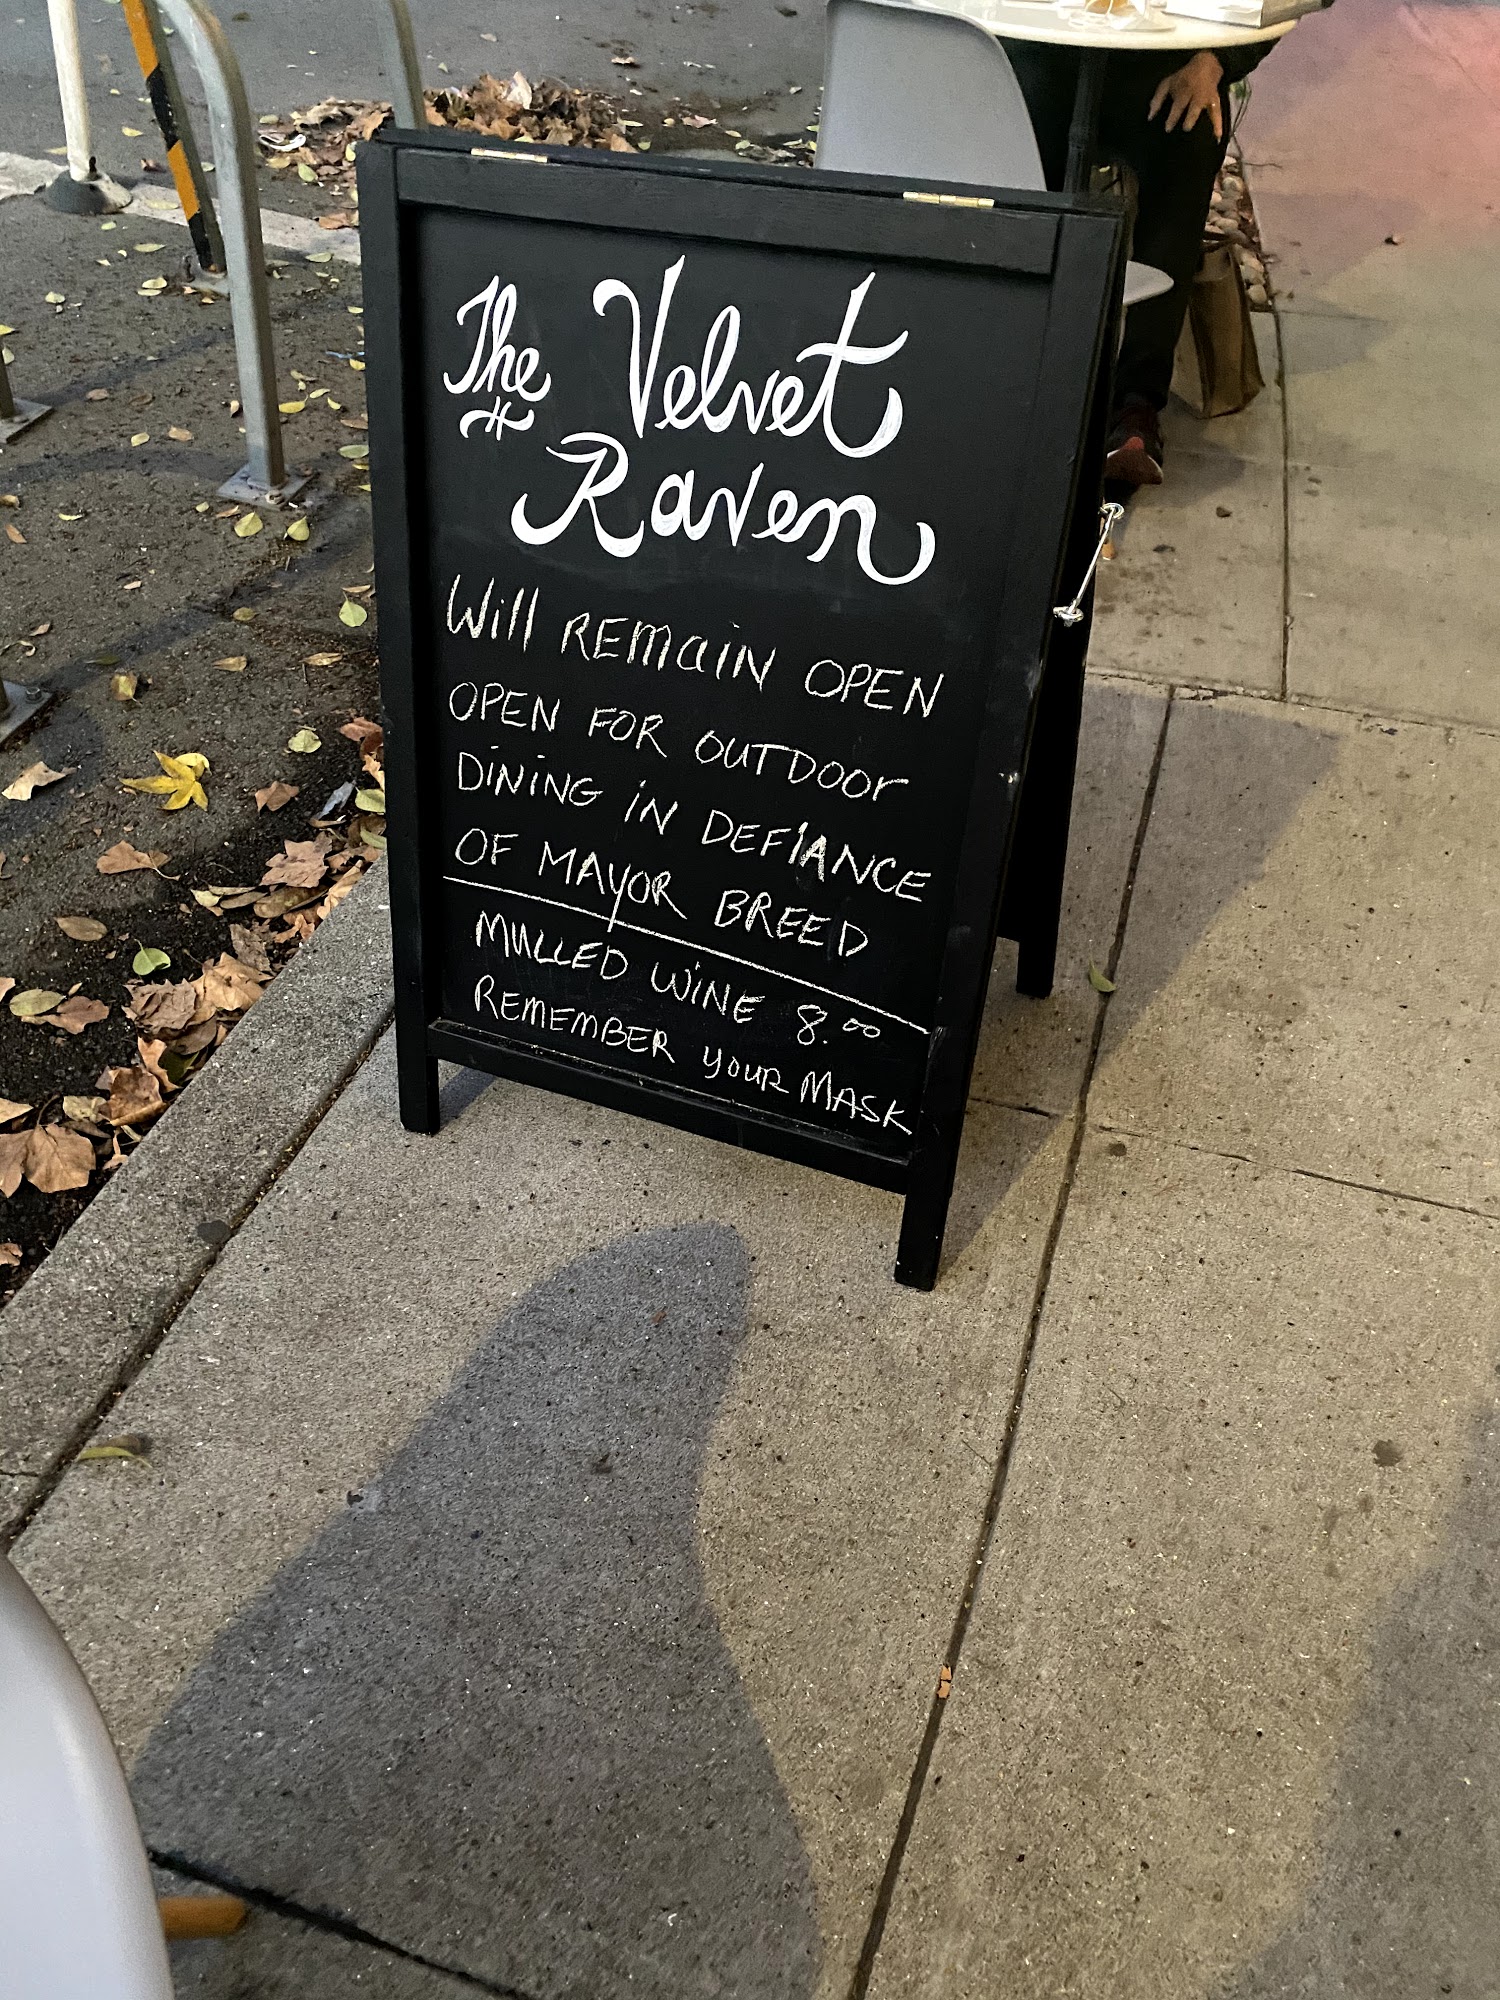 The Velvet
Raven
Will REMAIN OPEN
OPEN FOR OUTDOOR
DINING IN DEFIANCE
OF MAYOR BREED
MULLED WINE 8.00
REMEMBER YOUR MASK